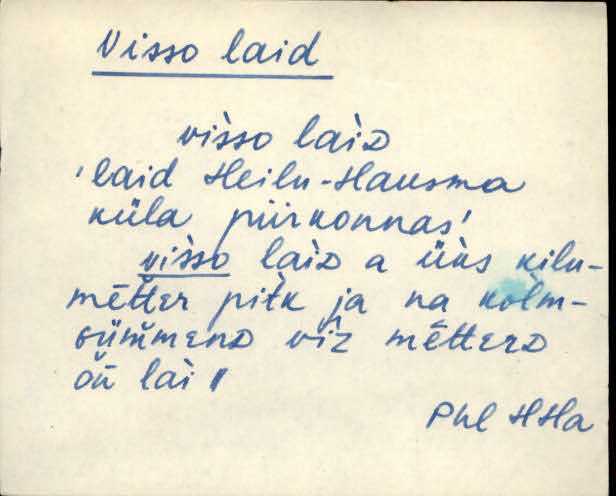 Visso laid
vìsso laìᴅ
'laid Heilu-Hausma
küla piirkonnas'
vìsso laìᴅ a üks kilu-
mētter pitk ja na kolm-
sümmenᴅ vīz mētterᴅ
laì "
Phl HHa